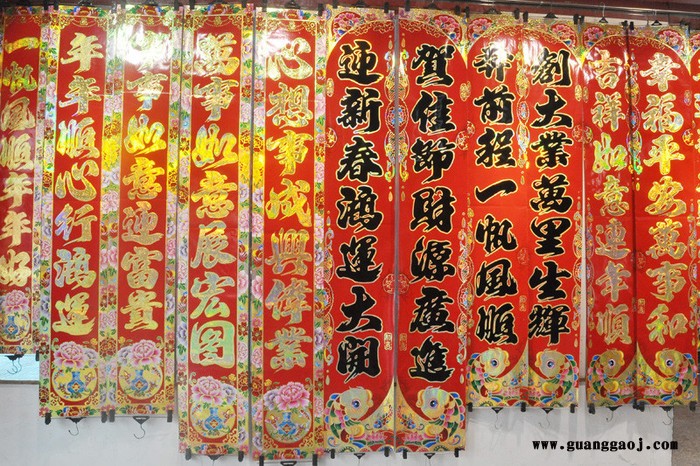 一帆風順年年好
年年順心行鴻運
事事如意迎富貴
萬事如意展宏圖
心想事成興偉業
迎新春鴻運大開
賀佳節財源廣進
奔前程一帆風順
創大業萬里生輝
吉祥如意連年順
幸福平安萬事和
www.guanggaoj.com